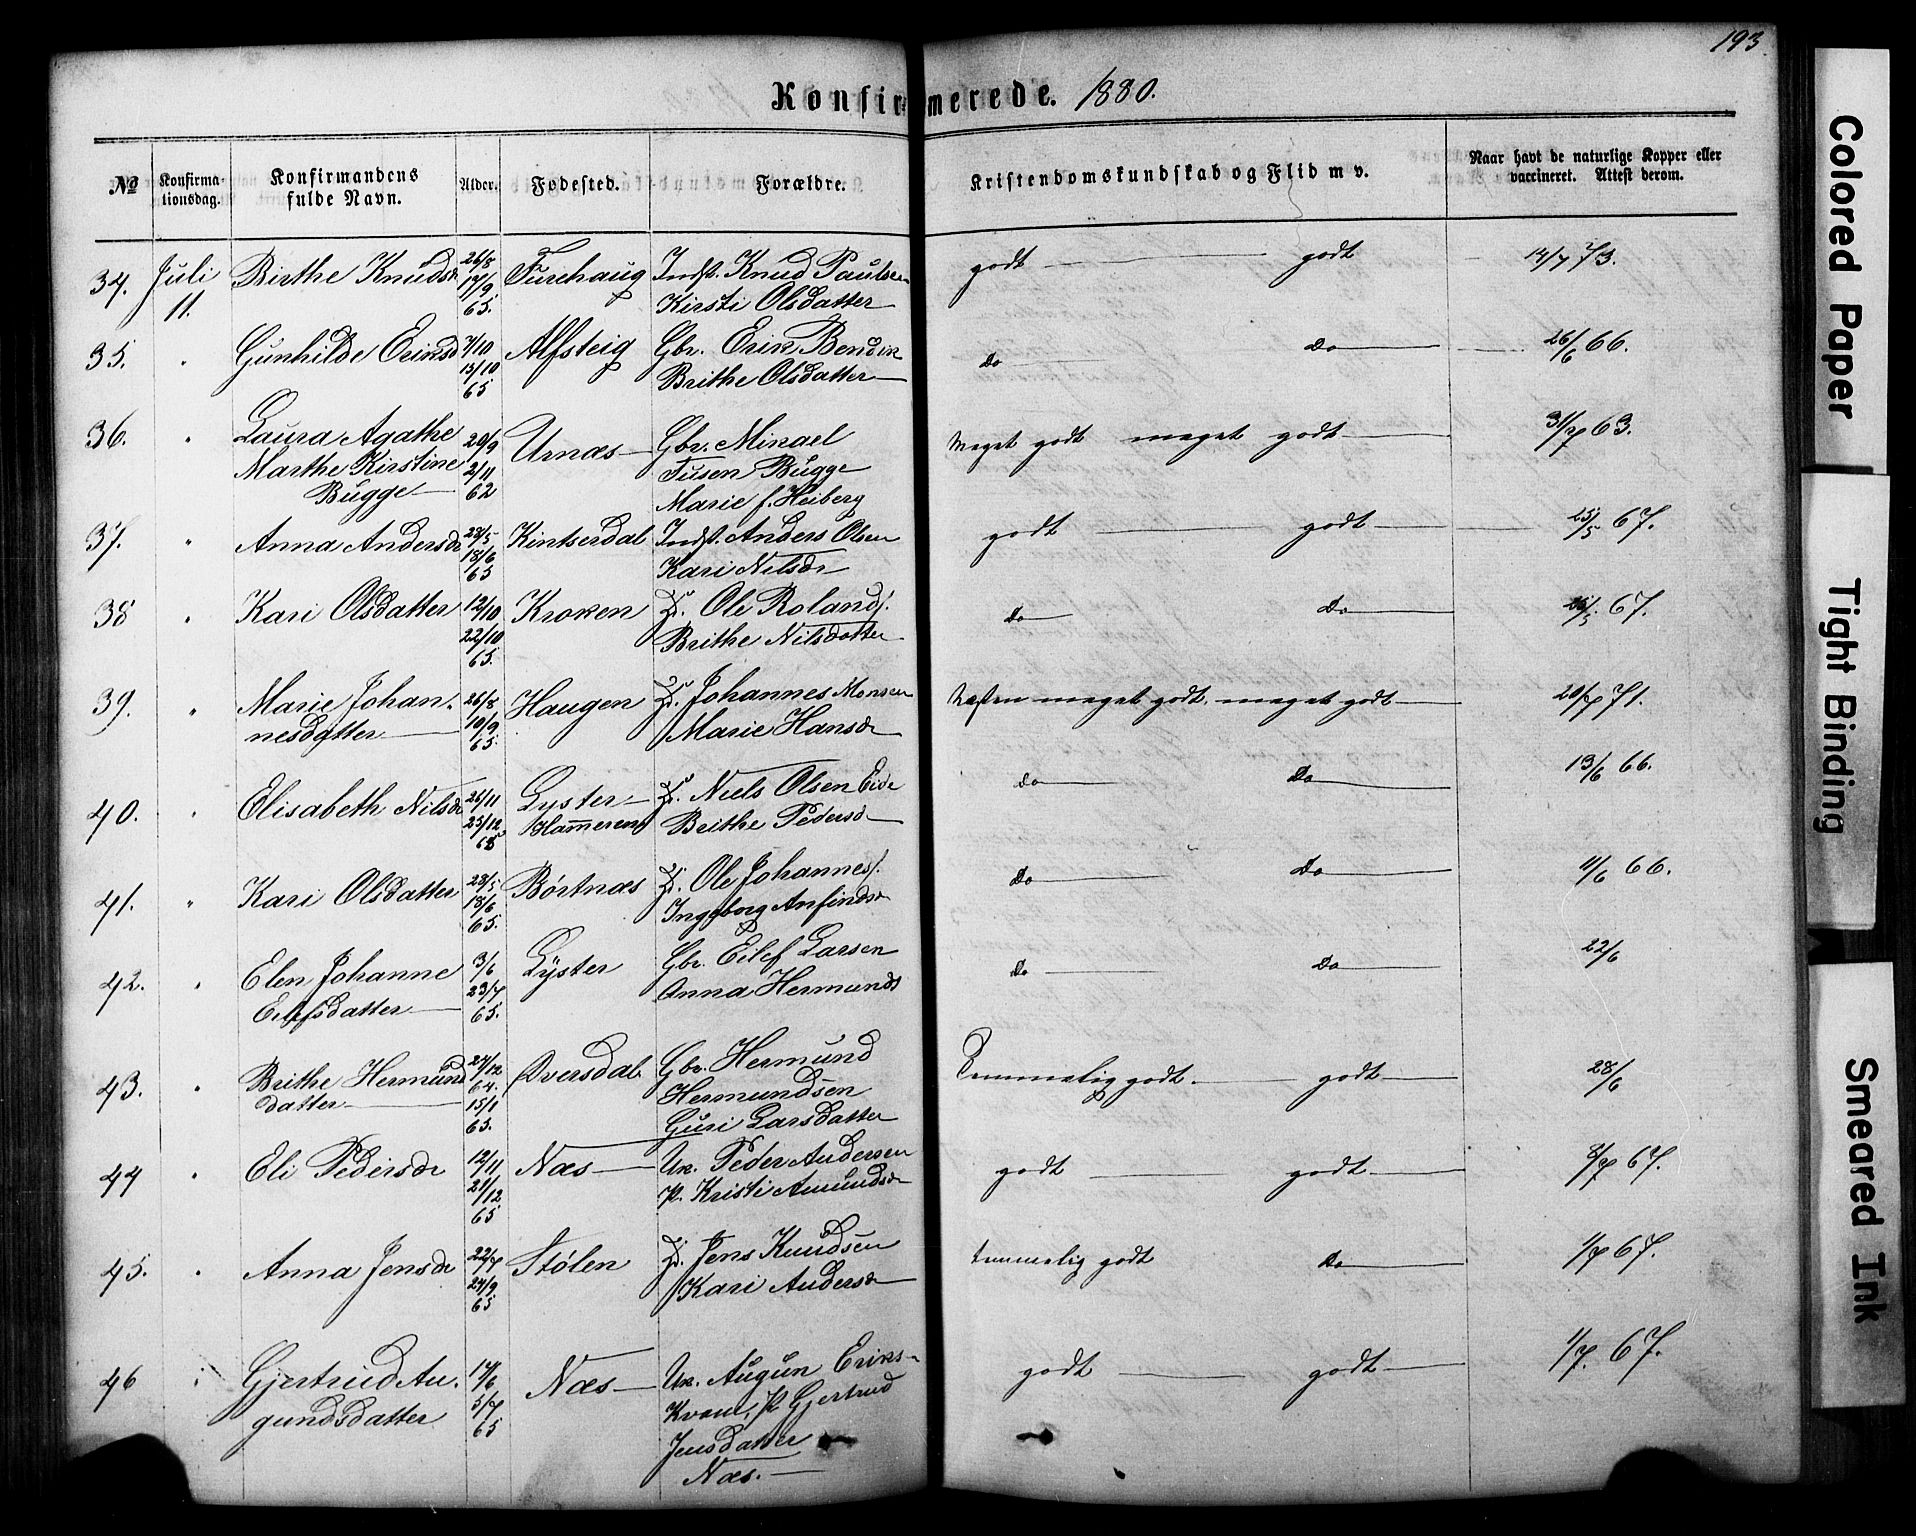 193.
Konfirmerede. 1880.
No
Konfirma-
tionsdag.
Konfirmandens
fulde Navn.
Alder.
Fødested.
Forældre.
Kristendomskundskab og Flid m v.
Naar havt de naturlige Kopper eller
vaccineret. Attest derom.
34. Juli 11. Birthe Knudsdr 26/8 17/9 65. Furehaug Indst. Knud Paulsen
Kirsti Olsdatter
godt godt 14/7 73.
35. " Gunhilde Eriksd 7/10 15/10 65 Alfsteig Gbr. Erik Bendik
Brithe Olsdatter
Do Do 26/6 66.
36. " Laura Agathe
Marthe Kirstine
Bugge 20/9 2/11 62 Urnæs Gbr. Mikael
Fusen Bugge
Marie f. Heiberg
Meget godt meget godt 31/7 63.
37. " Anna Andersdr 28/5 18/6 65 Kintserdal Indst. Anders Olsen
Kari Nilsdr
godt godt 25/5 67.
38 " Kari Olsdatter 12/10 22/10 65. Kroken Ole Roland
Brithe Nilsdatter
Do Do 25/5 67.
39. " Marie Johan-
nesdatter 26/8 10/9 65. Haugen Johannes Monsen
Marie Hansdr
Næsten meget godt, meget godt 20/7 71.
40. " Elisabeth Nilsdr 26/11 25/12 65 Lyster
Hammeren Niels Olsen Eide
Brithe Pedersd
Do Do 13/6 66.
41. " Kari Olsdatter 28/5 18/6 65. Børtnæs Ole Johannes
Ingeborg Anfindsdr
Do Do 4/6 66.
42. " Elen Johanne
Eilefsdatter 3/6 23/7 65. Lyster Gbr. Eilef Larsen
Anna Hermunds
Do Do 22/6
43. " Brithe Hermund
datter 27/12 64. 15/1 65. Øversdal Gbr. Hermund
Hermundsen
Guri Larsdatter
Temmelig godt. godt 28/6
44 " Eli Pedersdr 12/11 21/12 65 Næs Uk. Peder Andersen
P. Kristi Amundsdr
godt godt 2/7 67.
45. " Anna Jensdr 22/7 24/9 65 Stølen Jens Knudsen
Kari Andersdr
temmelig godt Do 1/7 67.
46 " Gjertrud Au-
gundsdatter 17/6 5/7 65 Næs Uk. Augun Eriks-
Kvam, P. Gjertrud
Jensdatter
Næs.
godt godt 1/7. 67.
Colored Paper
Tight Binding
Smeared Ink